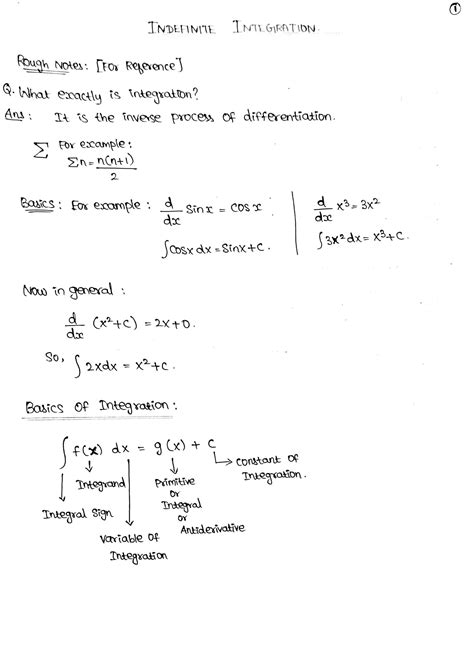 ①
INDEFINITE INTEGRATION.
Rough Notes: [For Reference]
Q. What exactly is integration?
Ans: It is the inverse process of differentiation.
∑ For example:
∑n = n(n+1)/2
Basics: For example: d/dx Sinx = cosx | d/dx x³ = 3x²
∫cosx dx = Sinx+C. | ∫3x² dx = x³+C.
Now in general:
d/dx (x²+C) = 2x+0.
So, ∫2xdx = x²+C.
Basics Of Integration:
∫ f(x) dx = g(x) + C
↳ constant of
Integration.
Integrand
Primitive
or
Integral
or
Antiderivative
Integral Sign
Variable Of
Integration